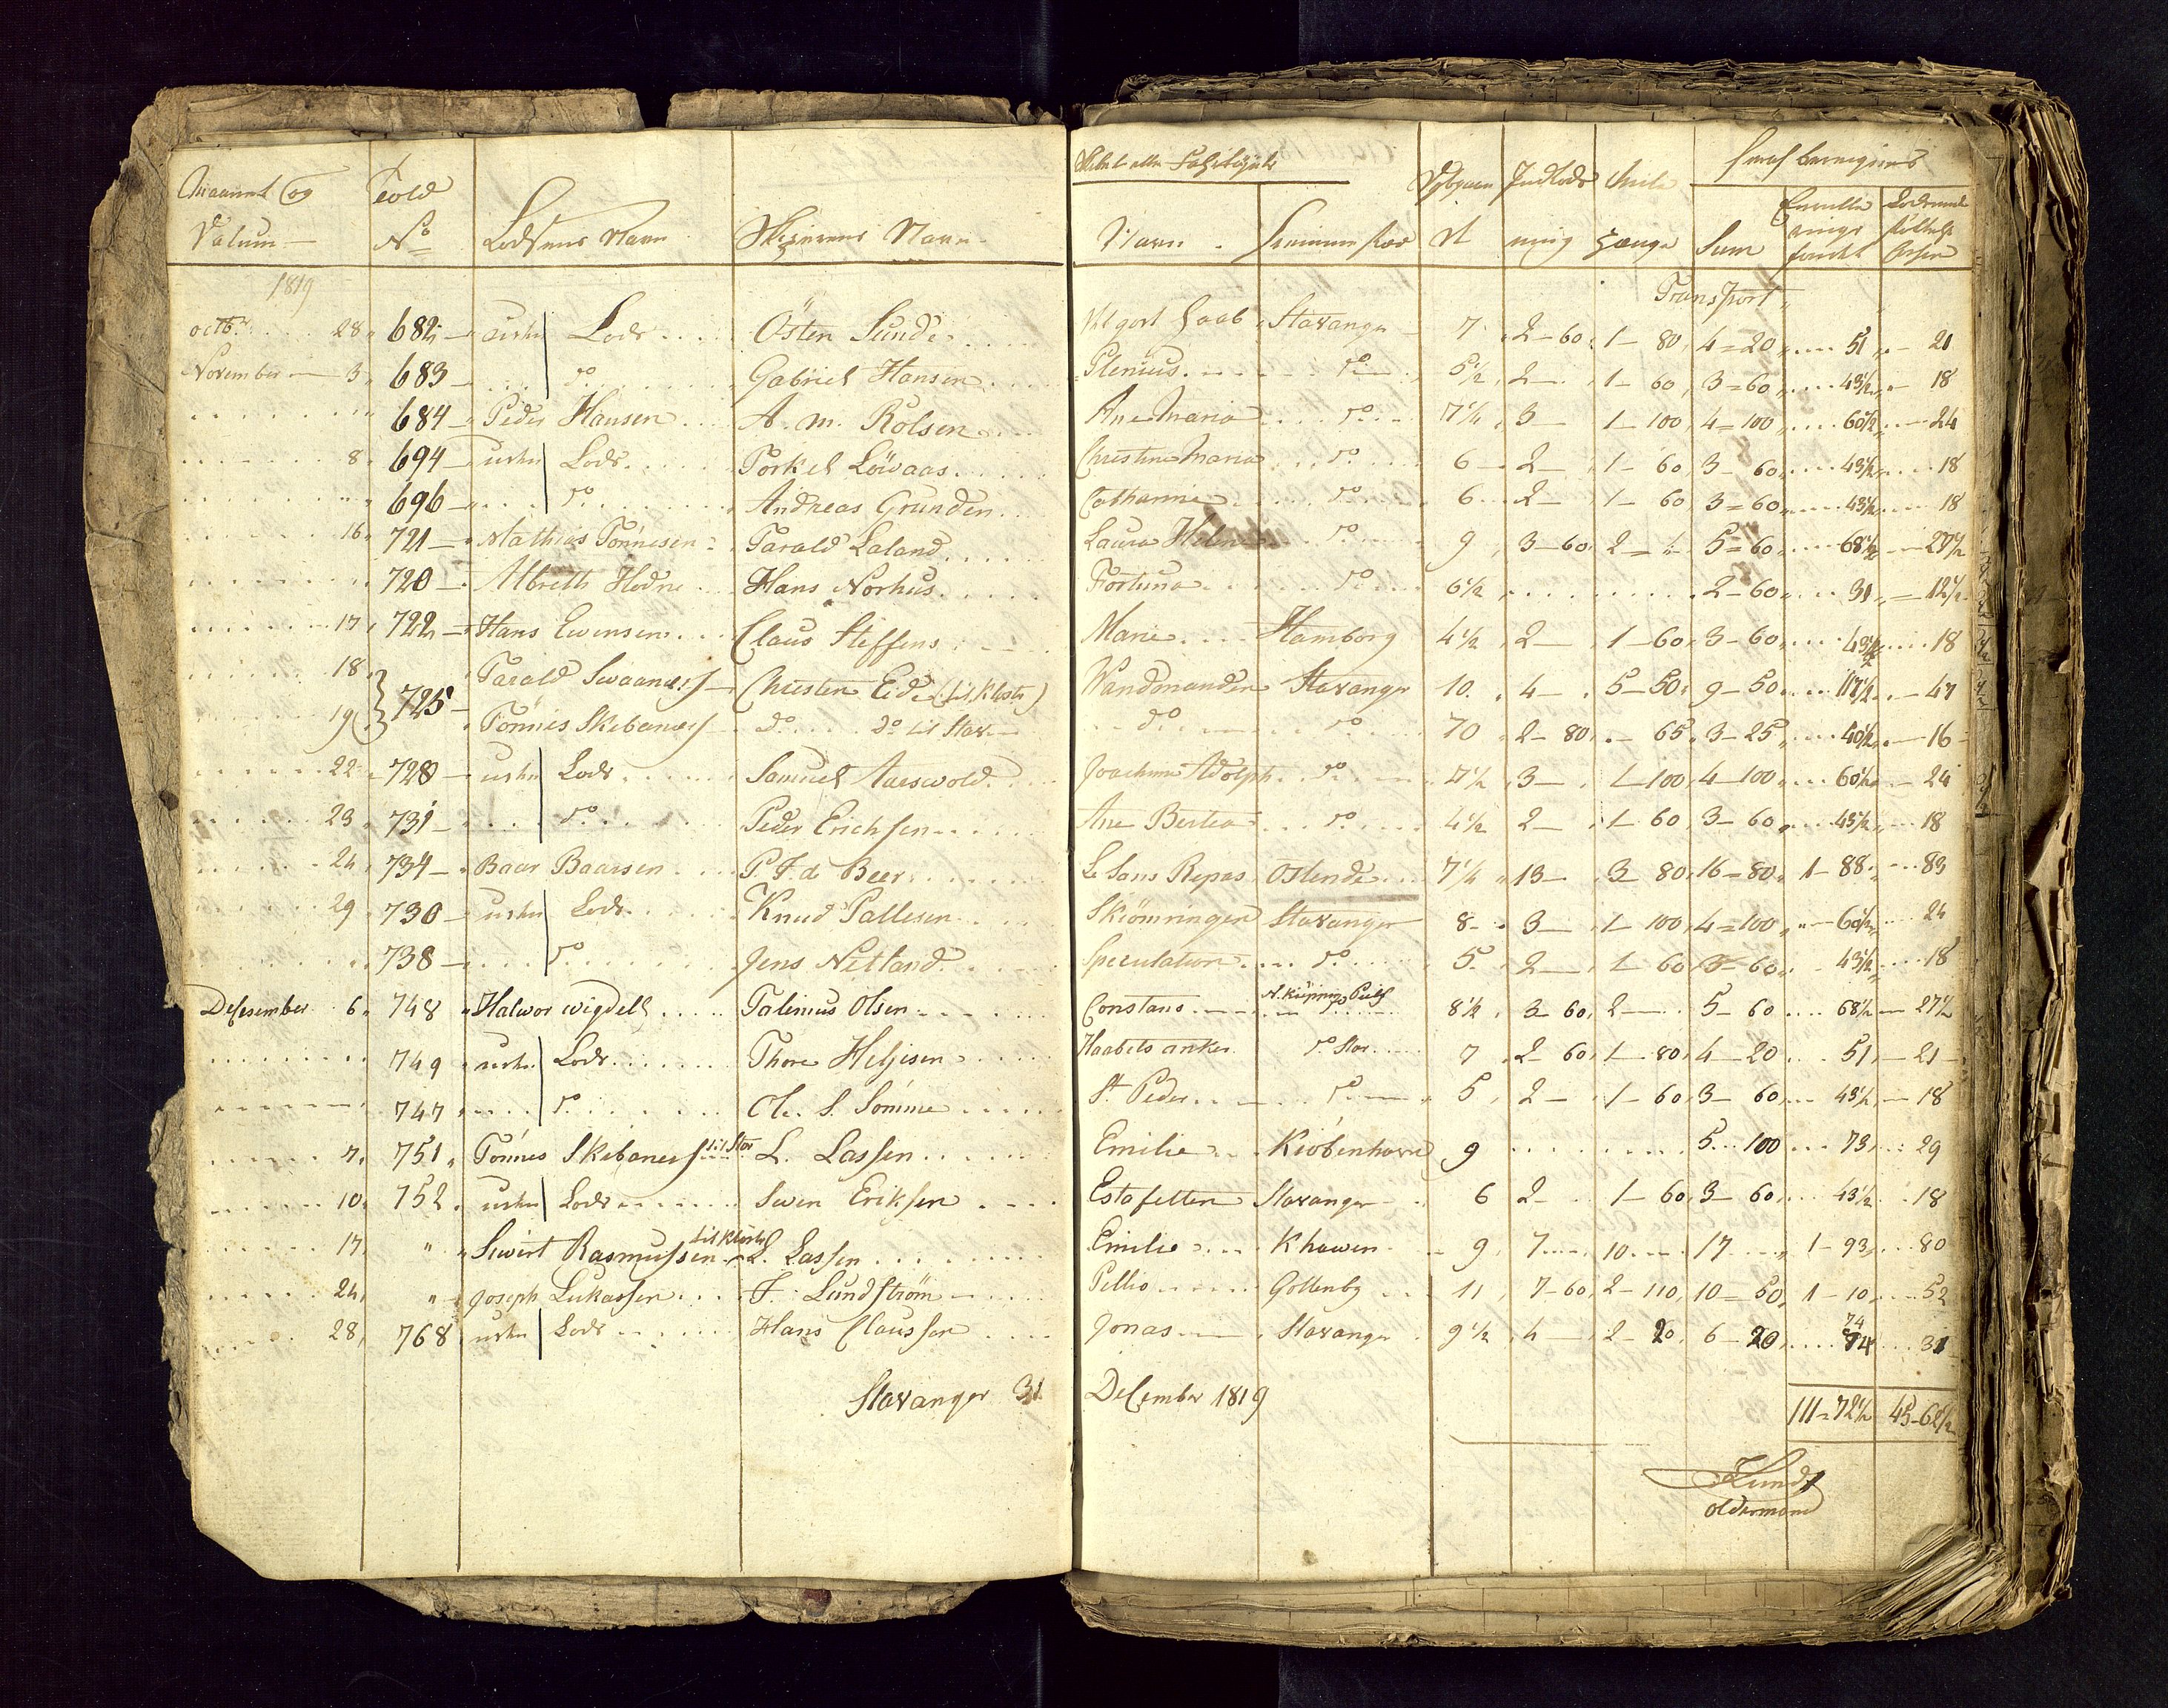 Maanet og Datum — Told No Lodsens Navn Skipperens Navn
Navn Dybgaaende Indlodsning Sum
1819
Transport
octbr 28 682 Lods Østen Sunde Stavanger 7 2-60 1-80 4-20 51 21
November 3 683 do Gabriel Hansen Plenius do 5 1/2 2 1-60 3-60 43 1/2 18
684 Peder Hansen A. M. Rolsen Ane Maria do 7 1/4 3 1-100 4-100 60 1/2 24
8 694 Lods Torkel Löwaas Christine Maria do 6 2 1-60 3-60 43 1/2 18
696 do Andreas Grunden Catharine do 6 2 1-60 3-60 43 1/2 18
16 721 Mathias Tönnesen Tarald Laland Laura Helene do 9 3-60 2 5-60 68 1/2 27 1/2
720 Albreth Hodne Hans Norhus Fortuna do 6 1/2 2-60 31 12 1/2
17 722 Hans Ewensen Claus Steffens Marie Hamborg 4 1/2 2 1-60 3-60 43 1/2 18
18 725 Tarald Swaanæs Christen Eide (til Kloster) Wandmanden Stavanger 10 4 5-50 9-50 117 1/2 47
19 Tönnes Skebanes do do til Stav do do 10 2-80 65 3-25 40 1/2 16
22 728 Lods Samuel Aareswold Joachim Adolph do 7 1/2 3 1-100 4-100 60 1/2 24
23 731 do Peder Erichsen Ane Bertea do 4 1/2 2 1-60 3-60 43 1/2 18
24 734 Baar Baarsen P. F. de Beer Le Sans Repos Ostende 7 1/4 13 3-80 16-80 1-88 83
29 730 Lods Knud Pallesen Skiömringen Stavanger 8 3 1-100 4-100 60 1/2 24
738 do Jens Netland Speculation do 5 2 1-60 3-60 43 1/2 18
Desember 6 748 Halwor Wigdell Talenius Olsen Constans 8 1/2 3-60 2 5-60 68 1/2 27 1/2
749 Lods Thore Helgesen Haabets anker do Stav 7 2-60 1-80 4-20 51 21
747 do Ole S. Sömme St. Peder do 5 2 1-60 3-60 43 1/2 18
7 751 Tönnes Skebanes til Stav L. Lassen Emilie Kiöbenhavn 9 5-100 73 29
10 752 Lods Swen Eriksen Estafetten Stavanger 6 2 1-60 3-60 43 1/2 18
17 " Siwert Rasmussen til Kloster L. Lassen Emilie Khawen 9 7 10 17 1-93 80
24 " Joseph Lukassen F. Lundström Gottenbg 11 7-60 2-110 10-50 1-10 52
28 768 Lods Hans Claussen Jonas Stavanger 9 1/2 4 2-20 6-20 74 31
Stavanger 31 December 1819
111-72 1/2 45-62 1/2
Oldermand